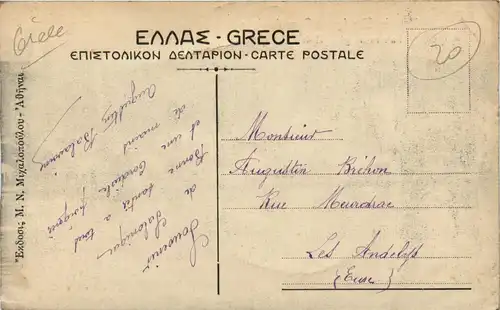 Grèce
20
ΕΛΛΑΣ - GRECE
ΕΠΙΣΤΟΛΙΚΟΝ ΔΕΛΤΑΡΙΟΝ - CARTE POSTALE
Ἔκδοσις Μ. Ν. Μιχαλοπούλου - Ἀθῆναι
Souvenir
de Salonique
Bonne santé a tous
et une
de main
Augustin
Monsieur
Augustin Bréhon
Rue
Les Andelys
(Eure)